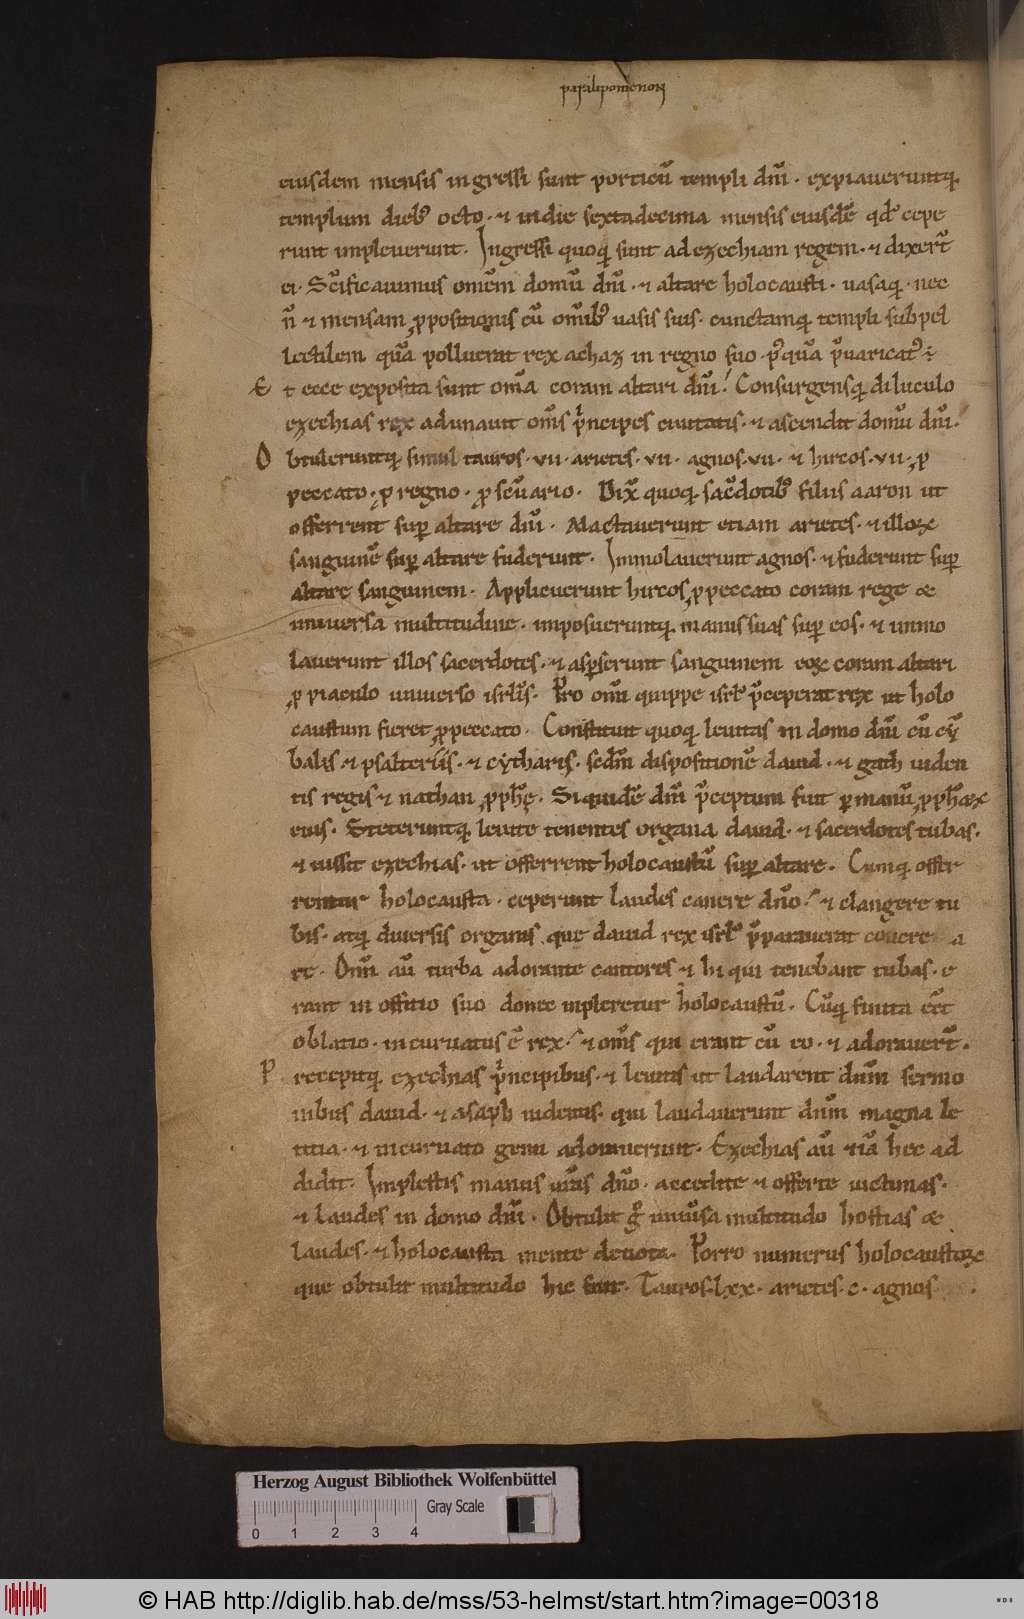 paralipomenon
eiusdem mensis ingressi sunt porticū templi dñi · expiaueruntq;
templum dieb⁹ octo · ⁊ in die sextadecima mensis eiusdē qd̄ cepe
runt impleuerunt · Ingressi quoq; sunt ad ezechiam regem · ⁊ dixerť
ei · Sc̄ificauimus om̄em domū dñi · ⁊ altare holocausti · uasaq; · nec
n̄ ⁊ mensam ꝓpositionis cū om̄ib⁹ uasis suis · cunctamq; templi subpel
lectilem quā polluerat rex achaz in regno suo · p⁹quā p̄uaricat⁹ ÷
E t ecce exposita sunt om̄a coram altari dñi · Consurgensq; diluculo
ezechias rex adunauit om̄s pⁱncipes ciuitatis · ⁊ ascendit domū dñi ·
O btuleruntq; simul tauros · vii · arietes · vii · agnos · vii · ⁊ hircos · vii · ꝓ
peccato · ꝓ regno · ꝓ sc̄uario · Dix̄ quoq; sac̄dotib⁹ filiis aaron ut
offerrent suꝑ altare dñi · Mactauerunt etiam arietes · ⁊ illoꝝ
sanguinē suꝑ altare fuderunt · Immolauerunt agnos · ⁊ fuderunt suꝑ
altare sanguinem · Applicuerunt hircos ꝓ peccato coram rege &
uniuersa multitudine · imposueruntq; manus suas suꝑ eos · ⁊ immo
lauerunt illos sacerdotes · ⁊ asꝑserunt sanguinem eoꝝ coram altari
ꝓ piaculo uniuerso isrl̄is · Pro om̄i quippe isrl̄ p̄ceperat rex ut holo
caustum fieret ꝓ peccato · Constituit quoq; leuitas in domo dñi cū cȳ
balis ⁊ psalteriis · ⁊ cytharis · secd̄m dispositionē dauid · ⁊ gath uiden
tis regis ⁊ nathan ꝓph̄ę · Siquidē dñi p̄ceptum fuit ꝑ manū ꝓph̄aꝝ
eius · Steteruntq; leuite tenentes organa dauid · ⁊ sacerdotes tubas ·
⁊ iussit ezechias · ut offerrent holocaustū suꝑ altare · Cumq; offer
rentur holocausta · ceperunt laudes canere dño · ⁊ clangere tu
bis · atq; diuersis organis que dauid rex isrl̄ p̄parauerat
re · Om̄i aū turba adorante cantores ⁊ hi qui tenebant tubas · e
rant in offitio suo donec impleretur holocaustū · Cūq; finita eēt
oblatio · incuruatus ē rex · ⁊ om̄s qui erant cū eo · ⁊ adorauerť ·
P recepitq; ezechias pⁱncipibus · ⁊ leuitis ut laudarent dn̄m sermo
nibus dauid · ⁊ asaph uidentis · qui laudauerunt dn̄m magna le
titia · ⁊ incuruato genu adorauerunt · Ezechias aū etiā hec ad
didit · Implestis manus ur̄as dño · accedite ⁊ offerte uictimas ·
⁊ laudes in domo dñi · Obtulit g° uniūsa multitudo hostias &
laudes · ⁊ holocausta mente deuota · Porro numerus holocaustoꝝ
que obtulit multitudo hic fuit · Tauros · lxx · arietes · c · agnos ·
Herzog August Bibliothek Wolfenbüttel
Gray Scale
0 1 2 3 4
© HAB http://diglib.hab.de/mss/53-helmst/start.htm?image=00318